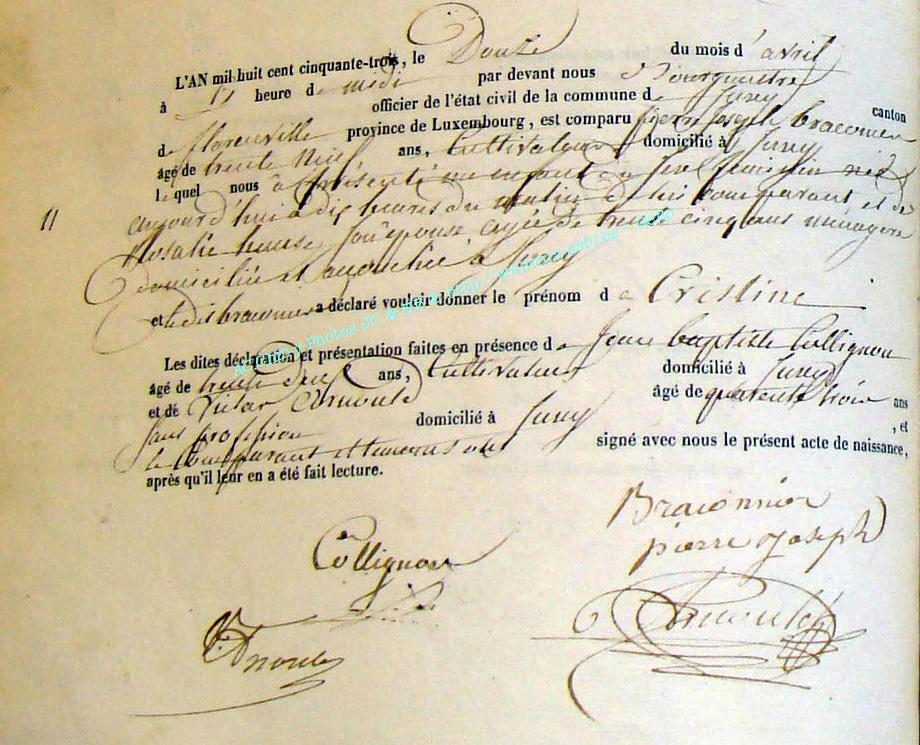 L'AN mil huit cent cinquante-trois, le Douze du mois d'avril
à heure de midi par devant nous Bourguemetre
officier de l'état civil de la commune d Juny canton
de florenville province de Luxembourg, est comparu pierre joseph braconier
âgé de trente neuf ans, Cultivateur domicilié à Juny
lequel nous à présenté un enfant du sexe feminin né
aujourd'hui à dix heures du matin de lui comparant et de
11
Rosalie son épouse agée de trente cinq ans menagere
domiciliée et accouchée à Juny
et le dit braconier a déclaré vouloir donner le prénom de Cristine
Les dites déclaration et présentation faites en présence de Jean baptiste Collignon
âgé de trente ans, Cultivateur domicilié à Juny
et de Victor Arnould âgé de quarente trois ans
sans profession domicilié à Juny , et
le Comparant et temoins ont signé avec nous le présent acte de naissance,
après qu'il leur en a été fait lecture.
Braconnier
pierre joseph
Collignon
Arnould
V. Arnould